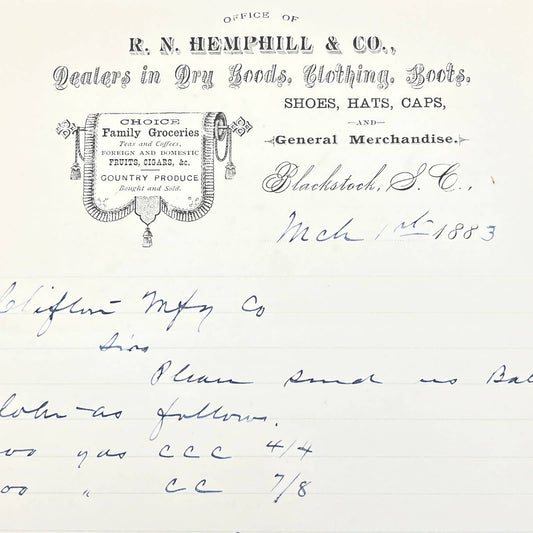 OFFICE OF
R. N. HEMPHILL & CO.,
Dealers in Dry Goods, Clothing, Boots,
SHOES, HATS, CAPS,
—AND—
General Merchandise.
CHOICE
Family Groceries
Teas and Coffees,
FOREIGN AND DOMESTIC
FRUITS, CIGARS, &c.
COUNTRY PRODUCE
Bought and Sold.
Blackstock, S. C.,
Mch 1st 1883
Clifton Mfg Co
Sirs
Please send us Bal
as follows.
00 yds CCC 4/4
00 " CC 7/8